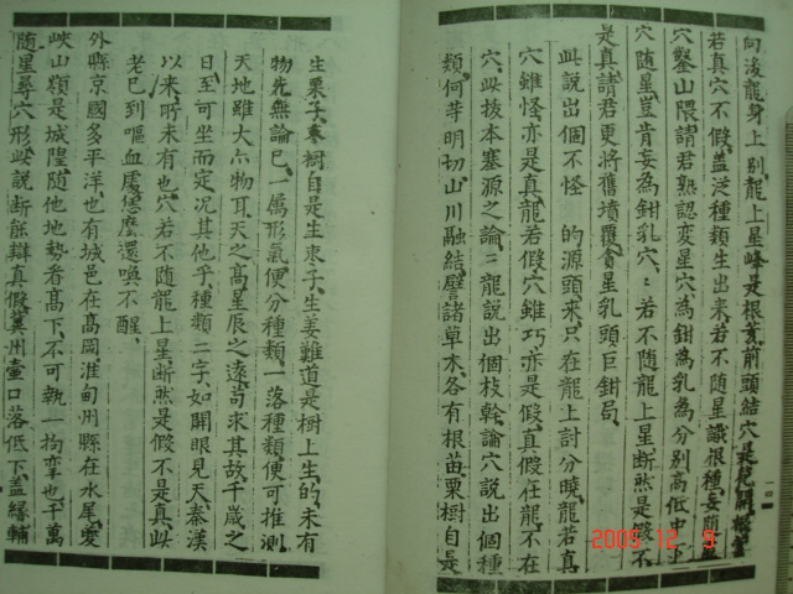 向後龍身上別龍上星峰是根荄前頭結穴是花開根荄
若真穴不假盖泛種類生出来若不随星識根種妄隨
穴鑿山隈請君熟認変星穴為鉗為乳為分別高低中下
穴随星豈肯妄為鉗乳穴:若不随龍上星断然是假不
是真請君更將舊墳覆貪星乳頭巨鉗局
此說出個不怪 的源頭来只在龍上討分曉龍若真
穴雖怪亦是真龍若假穴雖巧亦是假真假在龍不在
穴此拔本塞源之論二龍說出個枝幹論穴說出個種
類何等明切山川融結譬諸草木各有根苗栗樹自是
生栗子枣樹自是生枣子生姜難道是樹上生的未有
物先無論已一屬形氣便分種類一落種類便可推測
天地雖大亦物耳天之髙星辰之遠苟求其故千歲之
日至可坐而定况其他乎種類二字如開眼見天秦漢
以来所未有也穴若不随龍上星断然是假不是真此
老已到嘔血處怎麽還喚不醒
外縣京國多平洋也有城邑在髙岡淮甸州縣在水尾変
峽山類是城隍随他地勢看髙下不可執一拘牽也千萬
随星尋穴形此說断能辯真假冀州壷口落低下盖緣輔
2005 12 9